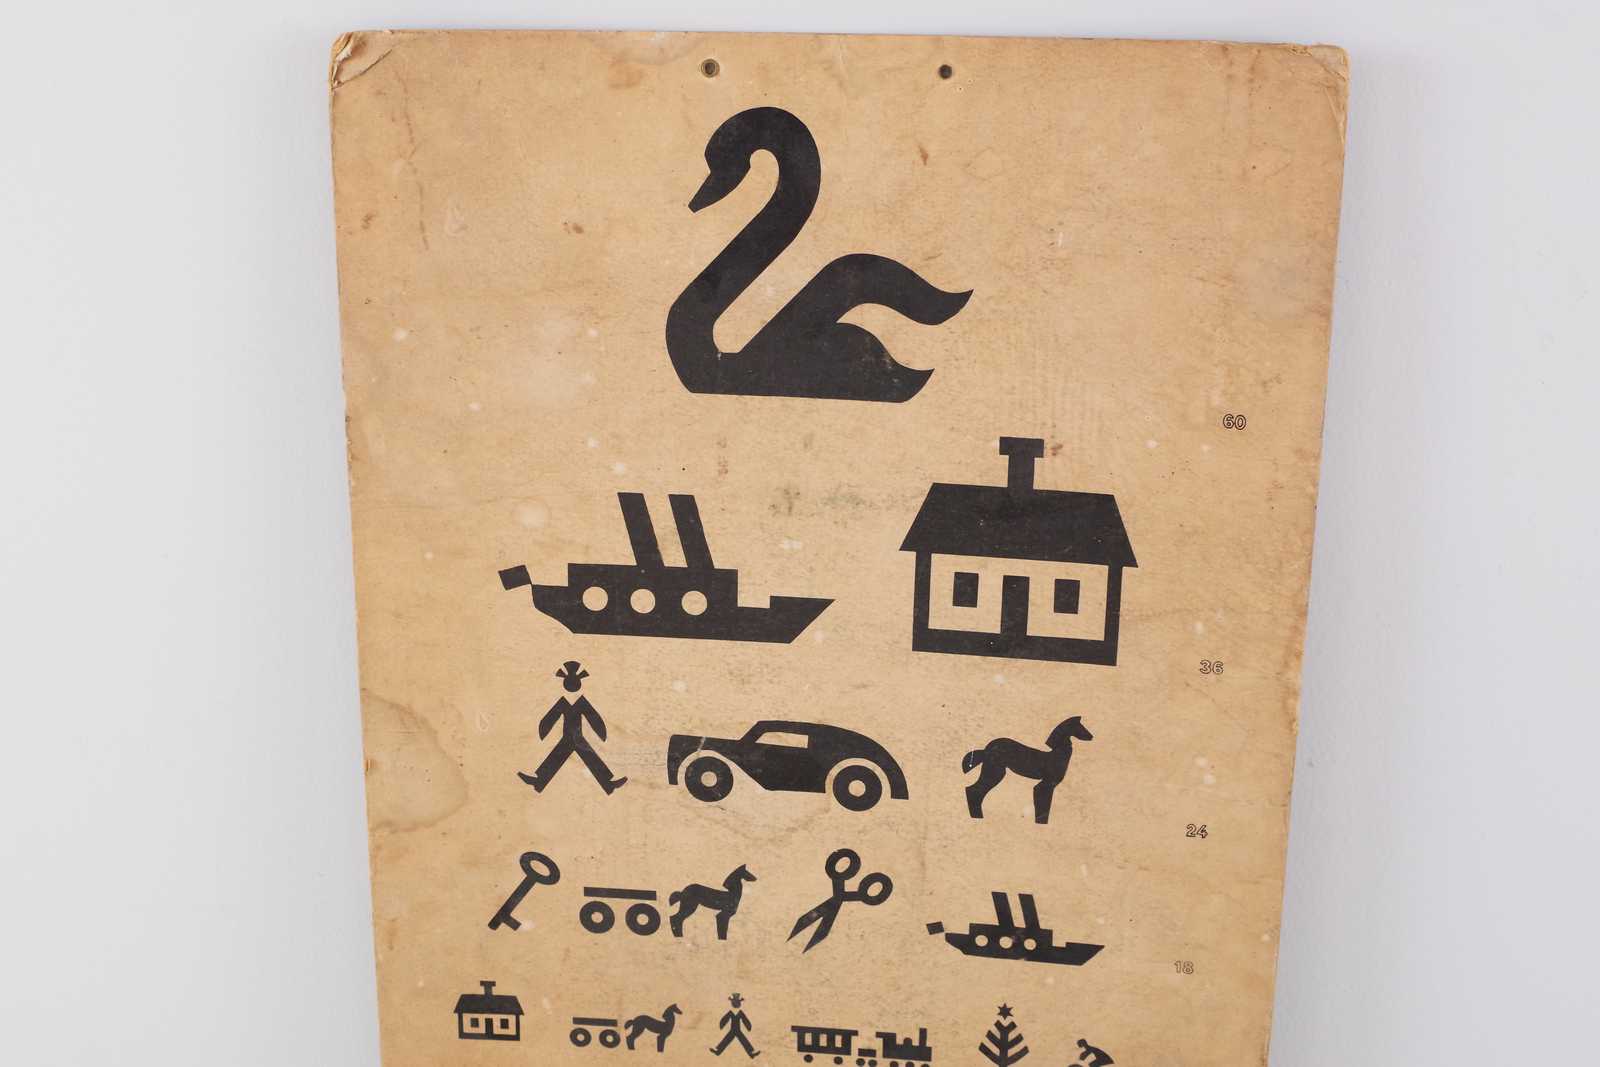 60
36
24
18